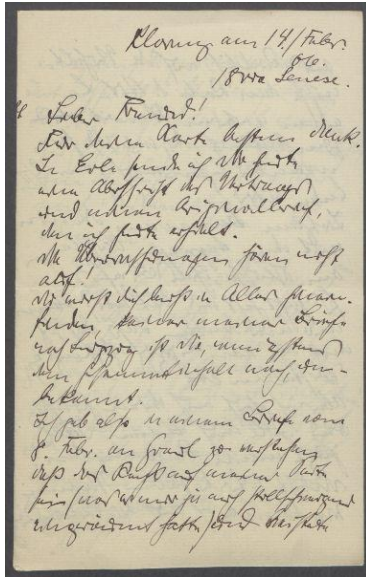 Florenz am 14./Febr.
06.
18 via Senese.
Lieber Freund!
Für deine Karte besten Dank.
In Eile sende ich dir heute
eine Abschrift des Vertrags
und einen Originalbrief,
den ich heute erhielt.
Die Überraschungen hören nicht
auf!
Du mußt dich leicht in Alles hinein-
finden, keiner meiner Briefe
nach Leipzig ist dir, wenigstens
dem Hauptinhalt nach, un-
bekannt.
Ich gab also in meinem Briefe vom
8. Febr. an Graul zu verstehen
daß das Recht auf meiner Seite
sei (was er mir ja auch stillschweigend
eingeräumt hatte) und